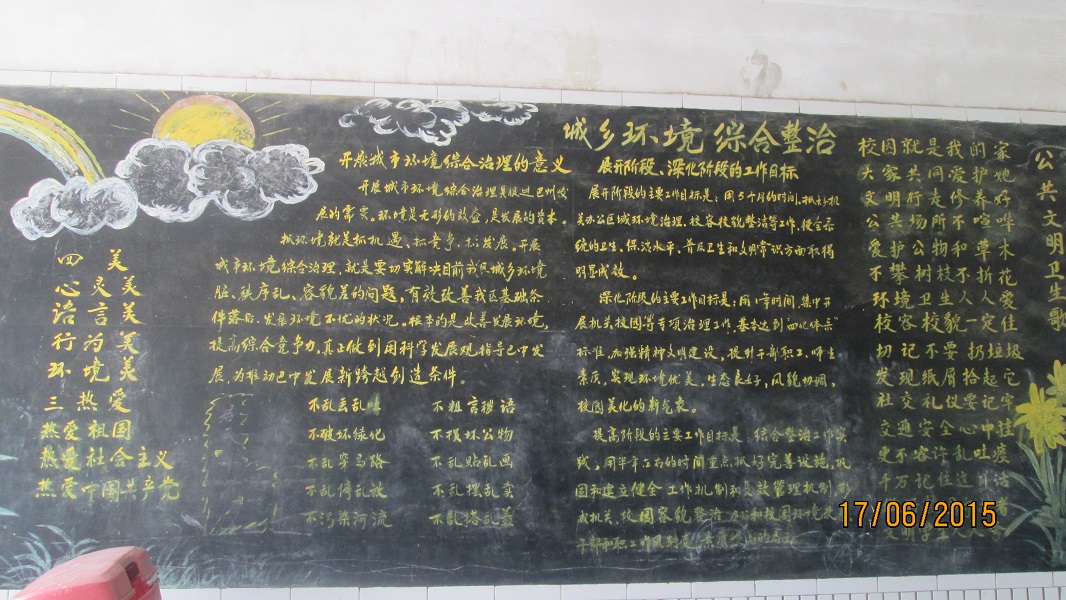 城乡环境 综合整治
四美
心灵美
语言美
行为美
环境美
三热爱
热爱祖国
热爱社会主义
热爱中国共产党
开展城市环境综合治理的意义
开展城市环境综合治理是
展的需要。环境是无形的效益,是发展的资本。
抓环境就是抓机遇、抓竞争、抓发展。开展
城市环境综合治理,就是要切实解决目前我区城乡环境
脏、秩序乱、容貌差的问题,有效改善我区基础条
件落后、发展环境不优的状况。根本的是改善发展环境,
提高综合竞争力,真正做到用科学发展观指导巴中发
展,为推动巴中发展新跨越创造条件。
不乱丢乱
不破坏绿化
不乱穿马路
不乱停乱放
不污染河流
不粗言秽语
不损坏公物
不乱贴乱画
不乱摆乱卖
不乱搭乱盖
展开阶段、深化阶段的工作目标
展开阶段的主要工作目标是:用5个月的时间,抓好机
关办公区域环境治理、校容校貌整洁等工作,使全系
统的卫生、保洁水平、普及卫生和文明常识方面取得
明显成效。
深化阶段的主要工作目标是:用1年时间,集中开
展机关校园等专项治理工作,基本达到“四化体系”
标准,加强精神文明建设,提升干部职工、师生
素质,实现环境优美,生态良好,风貌协调,
校园美化的新气象。
提高阶段的主要工作目标是 结合整治工作实
践,用半年左右的时间重点抓好完善设施,巩
固和建立健全工作机制和长效管理机制
成机关、校园容貌整治
公共文明卫生歌
校园就是我的家
大家共同爱护她
文明行走修养好
公共场所不喧哗
爱护公物和草木
不攀树枝不折花
环境卫生人人爱
校容校貌一定佳
切记不要扔垃圾
发现纸屑拾起它
社交礼仪要记牢
交通安全心中挂
更不容许乱吐痰
千万记住这
17/06/2015